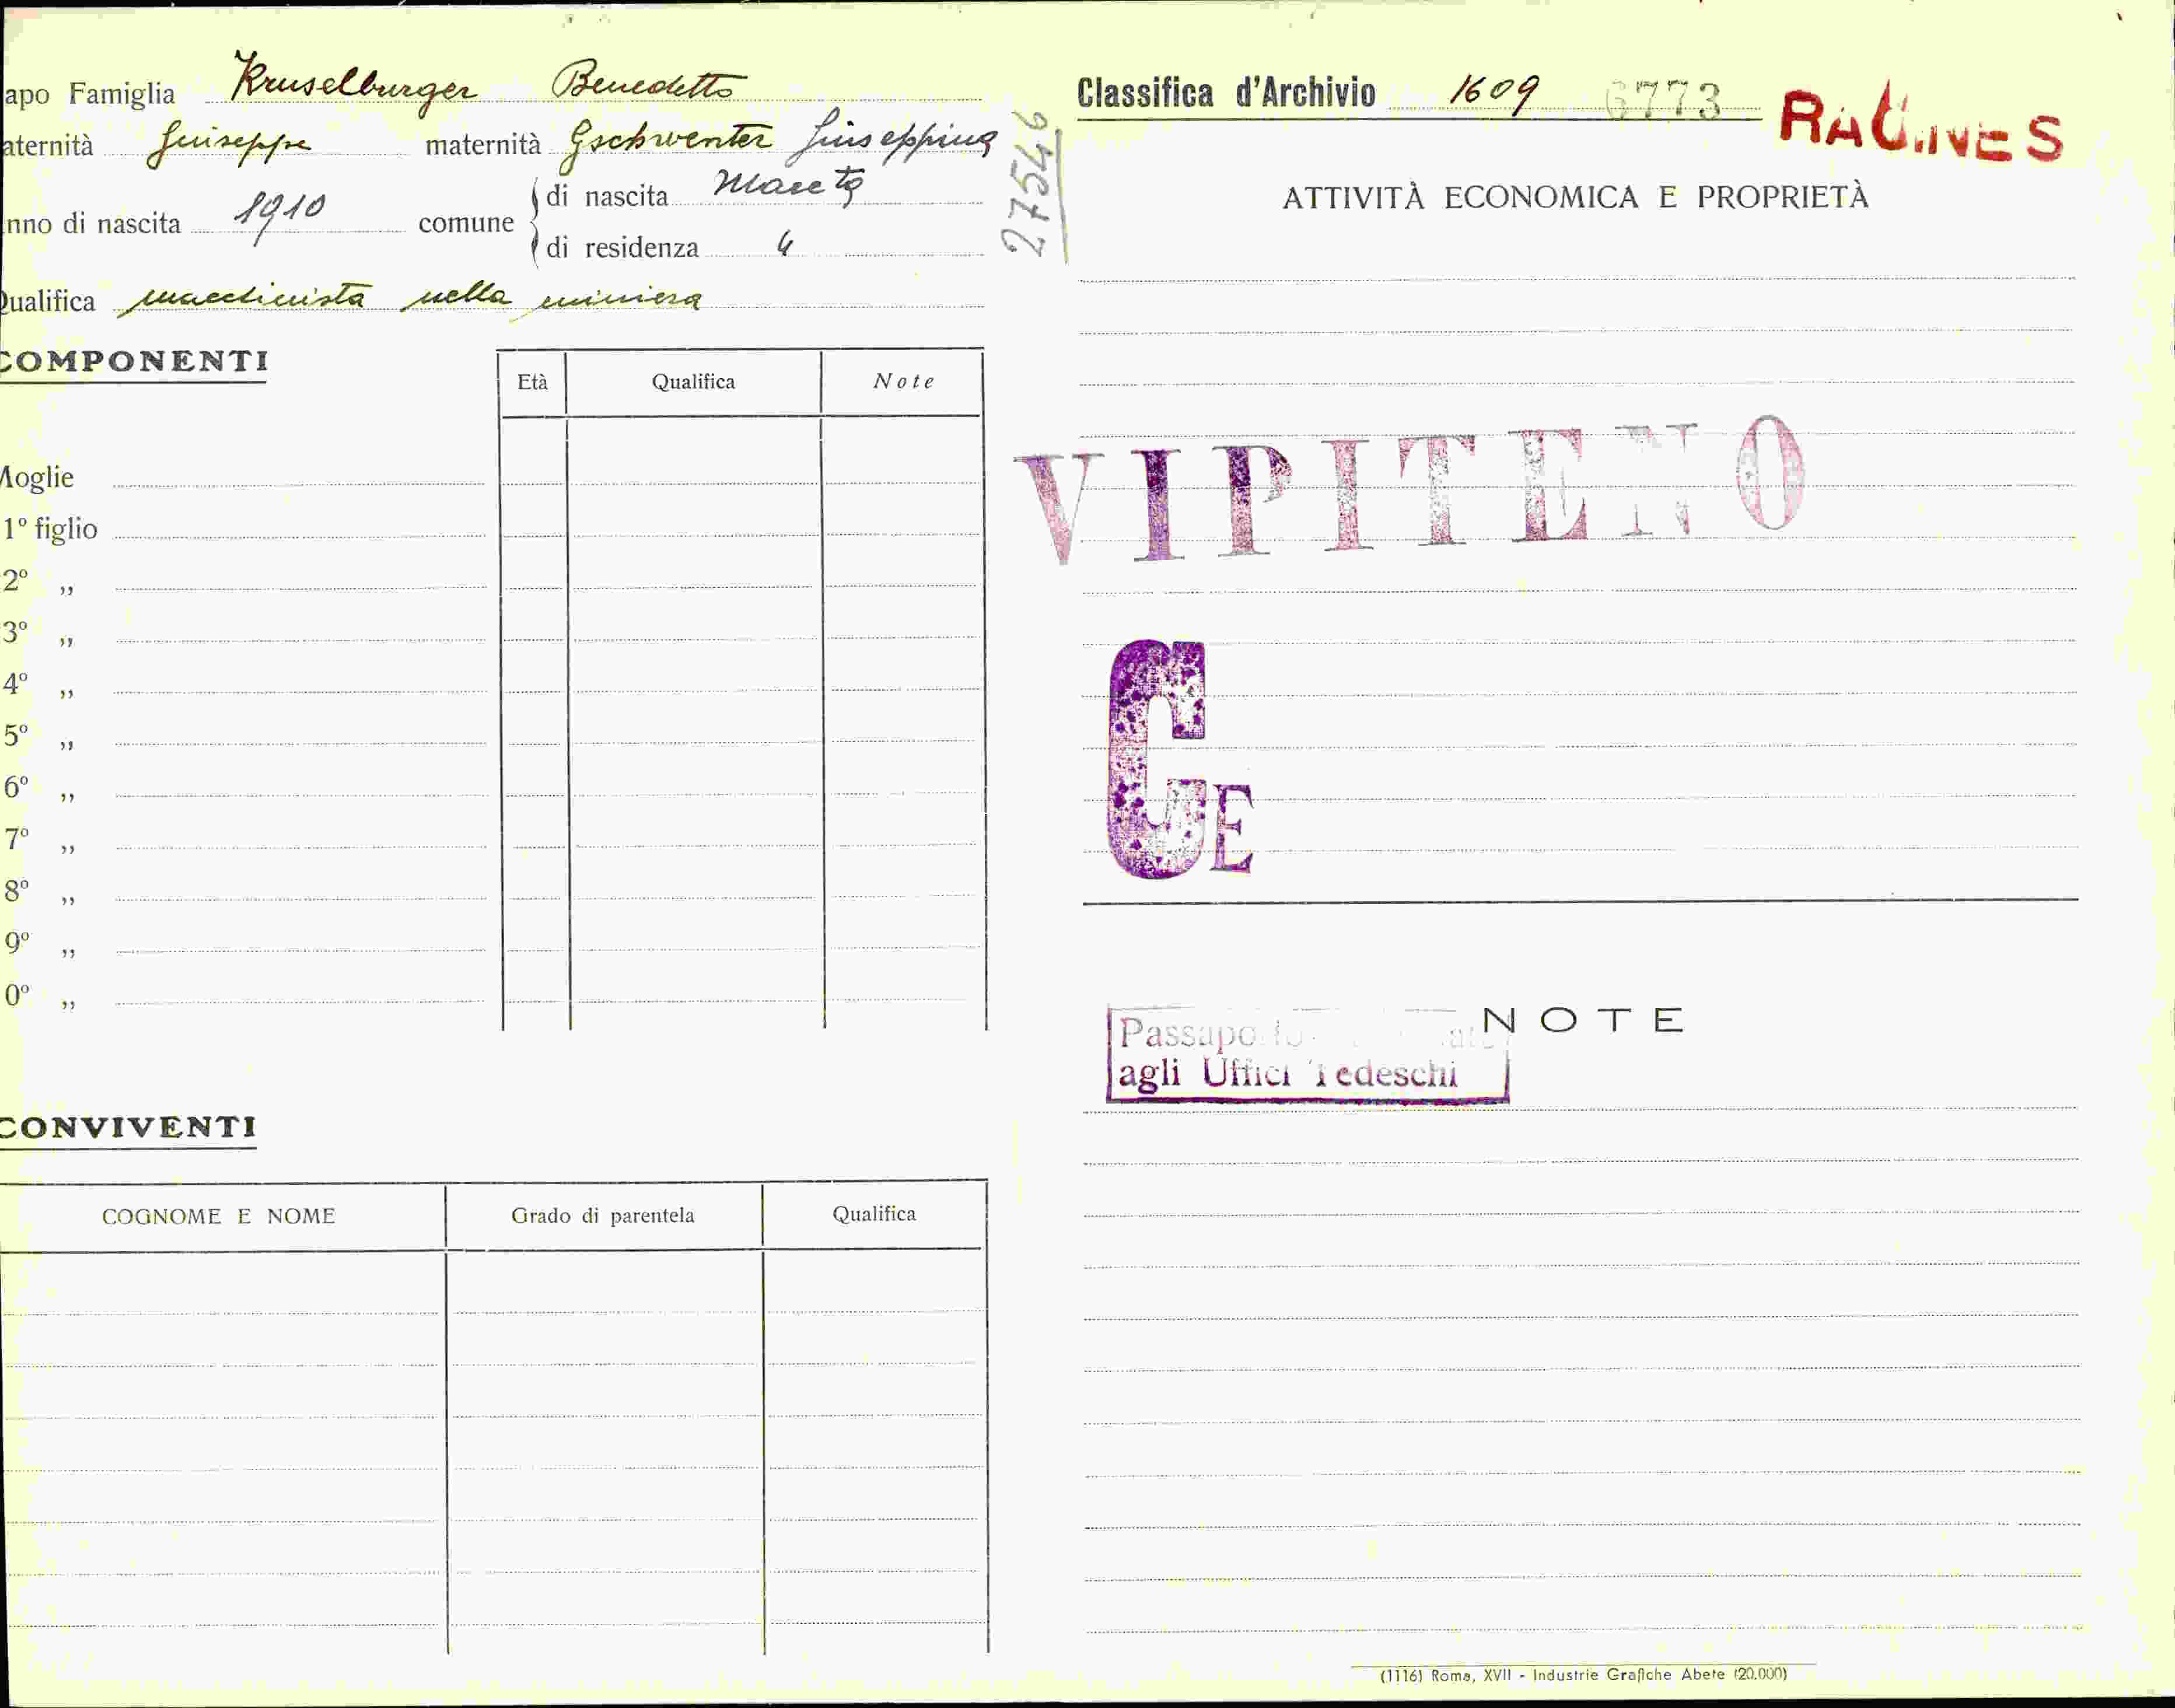 apo Famiglia Kruselburger Benedetto
aternità Giuseppe maternità Gschwenter Giuseppina
nno di nascita 1910 comune di nascita Mareta
di residenza 4
Qualifica macchinista nella miniera
COMPONENTI
Età Qualifica Note
Moglie
1º figlio
2º ,,
3º ,,
4º ,,
5º ,,
6º ,,
7º ,,
8º ,,
9º ,,
0º ,,
CONVIVENTI
COGNOME E NOME Grado di parentela Qualifica
27546
Classifica d'Archivio 1609 6773 RACINES
ATTIVITÀ ECONOMICA E PROPRIETÀ
VIPITENO
CE
NOTE
Passaporto
agli Uffici Tedeschi
(1116) Roma, XVII - Industrie Grafiche Abete (20.000)